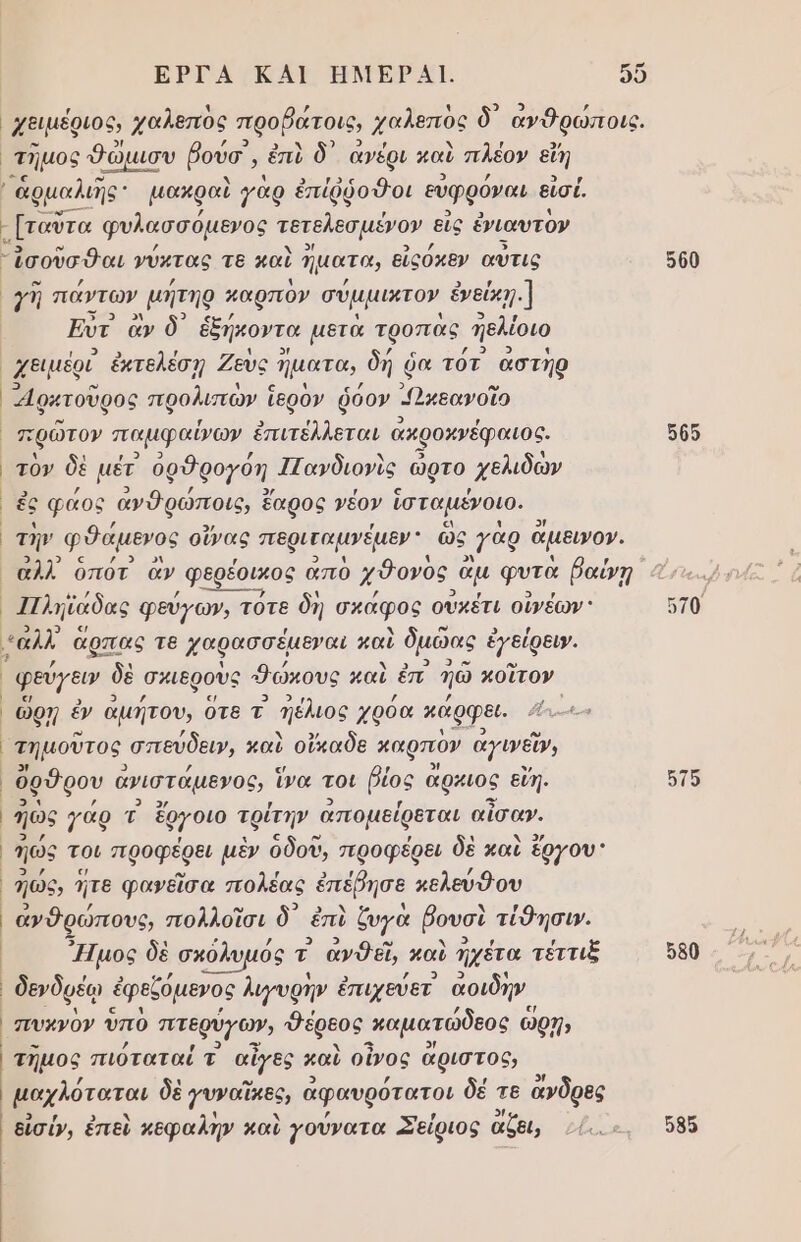 ΕΡΓΑ ΚΑΙ ΗΜΕΡΑΙ. 55
χειμέριος, χαλεπὸς προβάτοις, χαλεπὸς δ’ ἀνθρώποις.
τῆμος θὤμισυ βούσ’, ἐπὶ δ’ ἀνέρι καὶ πλέον εἴη
ἁρμαλιῆς· μακραὶ γὰρ ἐπίῤῥοθοι εὐφρόναι εἰσί.
[ταῦτα φυλασσόμενος τετελεσμένον εἰς ἐνιαυτὸν
ἰσοῦσθαι νύκτας τε καὶ ἤματα, εἰςόκεν αὖτις 560
γῆ πάντων μήτηρ καρπὸν σύμμικτον ἐνείκῃ.]
Εὖτ’ ἂν δ’ ἑξήκοντα μετὰ τροπὰς ἠελίοιο
χειμέρι’ ἐκτελέσῃ Ζεὺς ἤματα, δή ῥα τότ’ ἀστὴρ
Ἀρκτοῦρος προλιπὼν ἱερὸν ῥόον Ὠκεανοῖο
πρῶτον παμφαίνων ἐπιτέλλεται ἀκροκνέφαιος. 565
τὸν δὲ μέτ’ ὀρθρογόη Πανδιονὶς ὦρτο χελιδὼν
ἐς φάος ἀνθρώποις, ἔαρος νέον ἱσταμένοιο.
τὴν φθάμενος οἴνας περιταμνέμεν· ὣς γὰρ ἄμεινον.
ἀλλ’ ὁπότ’ ἂν φερέοικος ἀπὸ χθονὸς ἂμ φυτὰ βαίνῃ
Πληϊάδας φεύγων, τότε δὴ σκάφος οὐκέτι οἰνέων· 570
ἀλλ’ ἅρπας τε χαρασσέμεναι καὶ δμῶας ἐγείρειν.
φεύγειν δὲ σκιεροὺς θώκους καὶ ἐπ’ ἠῶ κοῖτον
ὥρῃ ἐν ἀμήτου, ὅτε τ’ ἠέλιος χρόα κάρφει.
τημοῦτος σπεύδειν, καὶ οἴκαδε καρπὸν ἀγινεῖν,
ὄρθρου ἀνιστάμενος, ἵνα τοι βίος ἄρκιος εἴη. 575
ἠὼς γάρ τ’ ἔργοιο τρίτην ἀπομείρεται αἶσαν.
ἠώς τοι προφέρει μὲν ὁδοῦ, προφέρει δὲ καὶ ἔργου·
ἠώς, ἥτε φανεῖσα πολέας ἐπέβησε κελεύθου
ἀνθρώπους, πολλοῖσι δ’ ἐπὶ ζυγὰ βουσὶ τίθησιν.
Ἦμος δὲ σκόλυμός τ’ ἀνθεῖ, καὶ ἠχέτα τέττιξ 580
δενδρέῳ ἐφεζόμενος λιγυρὴν ἐπιχεύετ’ ἀοιδὴν
πυκνὸν ὑπὸ πτερύγων, θέρεος καματώδεος ὥρῃ,
τῆμος πιόταταί τ’ αἶγες καὶ οἶνος ἄριστος,
μαχλόταται δὲ γυναῖκες, ἀφαυρότατοι δέ τε ἄνδρες
εἰσίν, ἐπεὶ κεφαλὴν καὶ γούνατα Σείριος ἄζει, 585